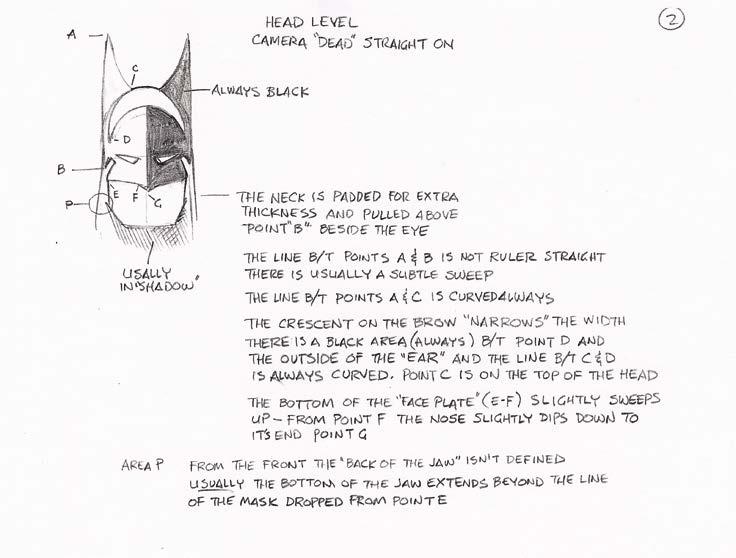 HEAD LEVEL
2
CAMERA "DEAD" STRAIGHT ON
A
C
ALWAYS BLACK
D
B
E
F
G
P
THE NECK IS PADDED FOR EXTRA
THICKNESS AND PULLED ABOVE
"POINT"B" BESIDE THE EYE
USALLY
IN"SHADOW"
THE LINE B/T POINTS A & B IS NOT RULER STRAIGHT
THERE IS USUALLY A SUBTLE SWEEP
THE LINE B/T POINTS A & C IS CURVED ALWAYS
THE CRESCENT ON THE BROW "NARROWS" THE WIDTH
THERE IS A BLACK AREA (ALWAYS) B/T POINT D AND
THE OUTSIDE OF THE "EAR" AND THE LINE B/T C & D
IS ALWAYS CURVED. POINT C IS ON THE TOP OF THE HEAD
THE BOTTOM OF THE "FACE PLATE" (E-F) SLIGHTLY SWEEPS
UP – FROM POINT F THE NOSE SLIGHTLY DIPS DOWN TO
IT'S END POINT G
AREA P FROM THE FRONT THE "BACK OF THE JAW" ISN'T DEFINED
USUALLY THE BOTTOM OF THE JAW EXTENDS BEYOND THE LINE
OF THE MASK DROPPED FROM POINT E